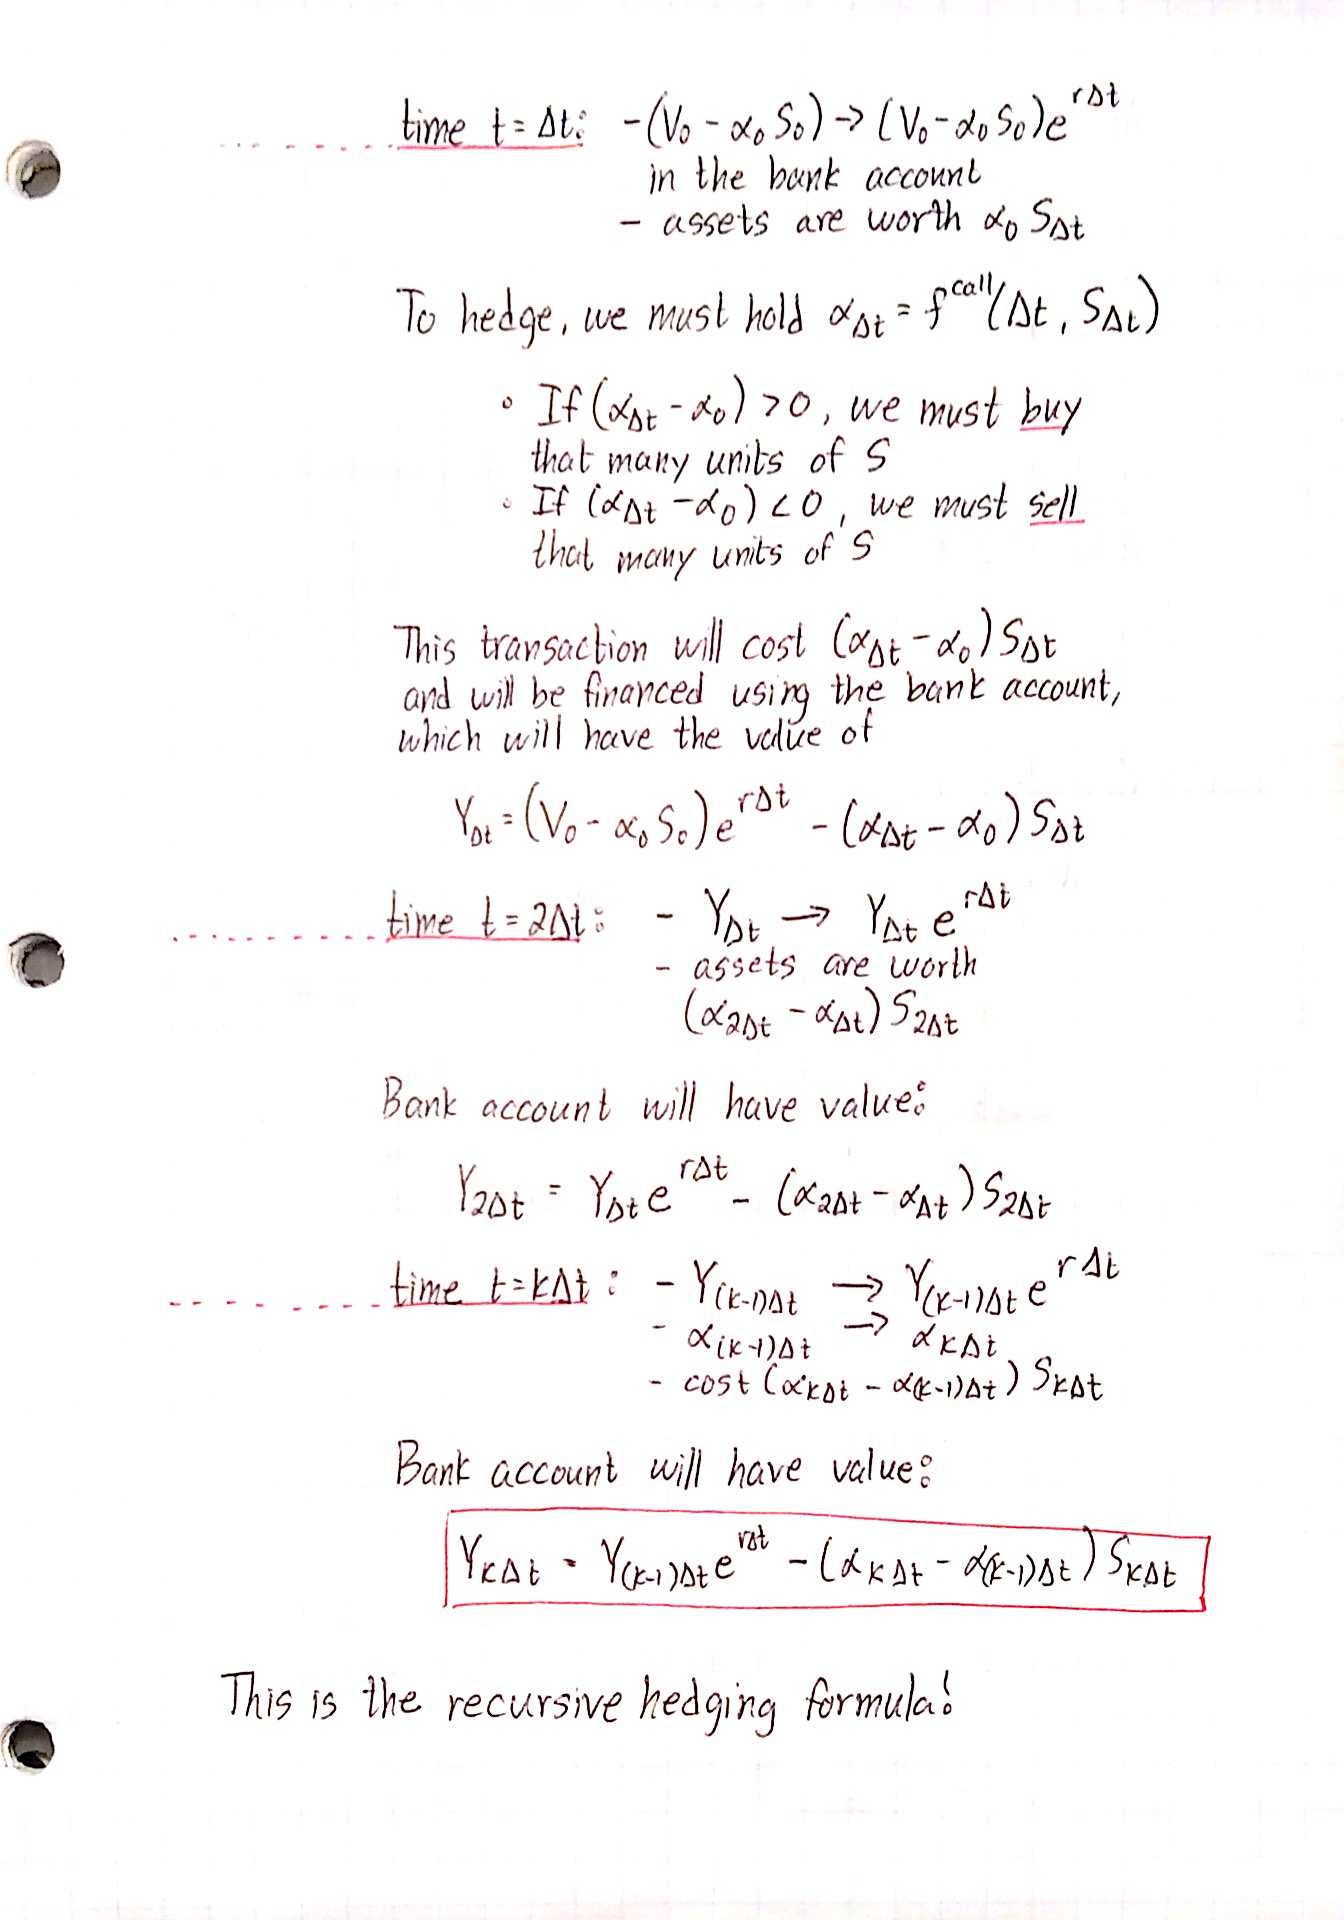 time t = Δt: - (V₀ - α₀ S₀) → (V₀ - α₀ S₀)e^{rΔt}
in the bank account
- assets are worth α₀ S_{Δt}
To hedge, we must hold α_{Δt} = f^{call}(Δt, S_{Δt})
◦ If (α_{Δt} - α₀) > 0, we must buy
that many units of S
◦ If (α_{Δt} - α₀) < 0, we must sell
that many units of S
This transaction will cost (α_{Δt} - α₀) S_{Δt}
and will be financed using the bank account,
which will have the value of
Y_{Δt} = (V₀ - α₀ S₀)e^{rΔt} - (α_{Δt} - α₀) S_{Δt}
time t = 2Δt: - Y_{Δt} → Y_{Δt} e^{rΔt}
- assets are worth
(α_{2Δt} - α_{Δt}) S_{2Δt}
Bank account will have value:
Y_{2Δt} = Y_{Δt} e^{rΔt} - (α_{2Δt} - α_{Δt}) S_{2Δt}
time t = kΔt: - Y_{(k-1)Δt} → Y_{(k-1)Δt} e^{rΔt}
- α_{(k-1)Δt} → α_{kΔt}
- cost (α_{kΔt} - α_{(k-1)Δt}) S_{kΔt}
Bank account will have value:
Y_{kΔt} = Y_{(k-1)Δt} e^{rΔt} - (α_{kΔt} - α_{(k-1)Δt}) S_{kΔt}
This is the recursive hedging formula!